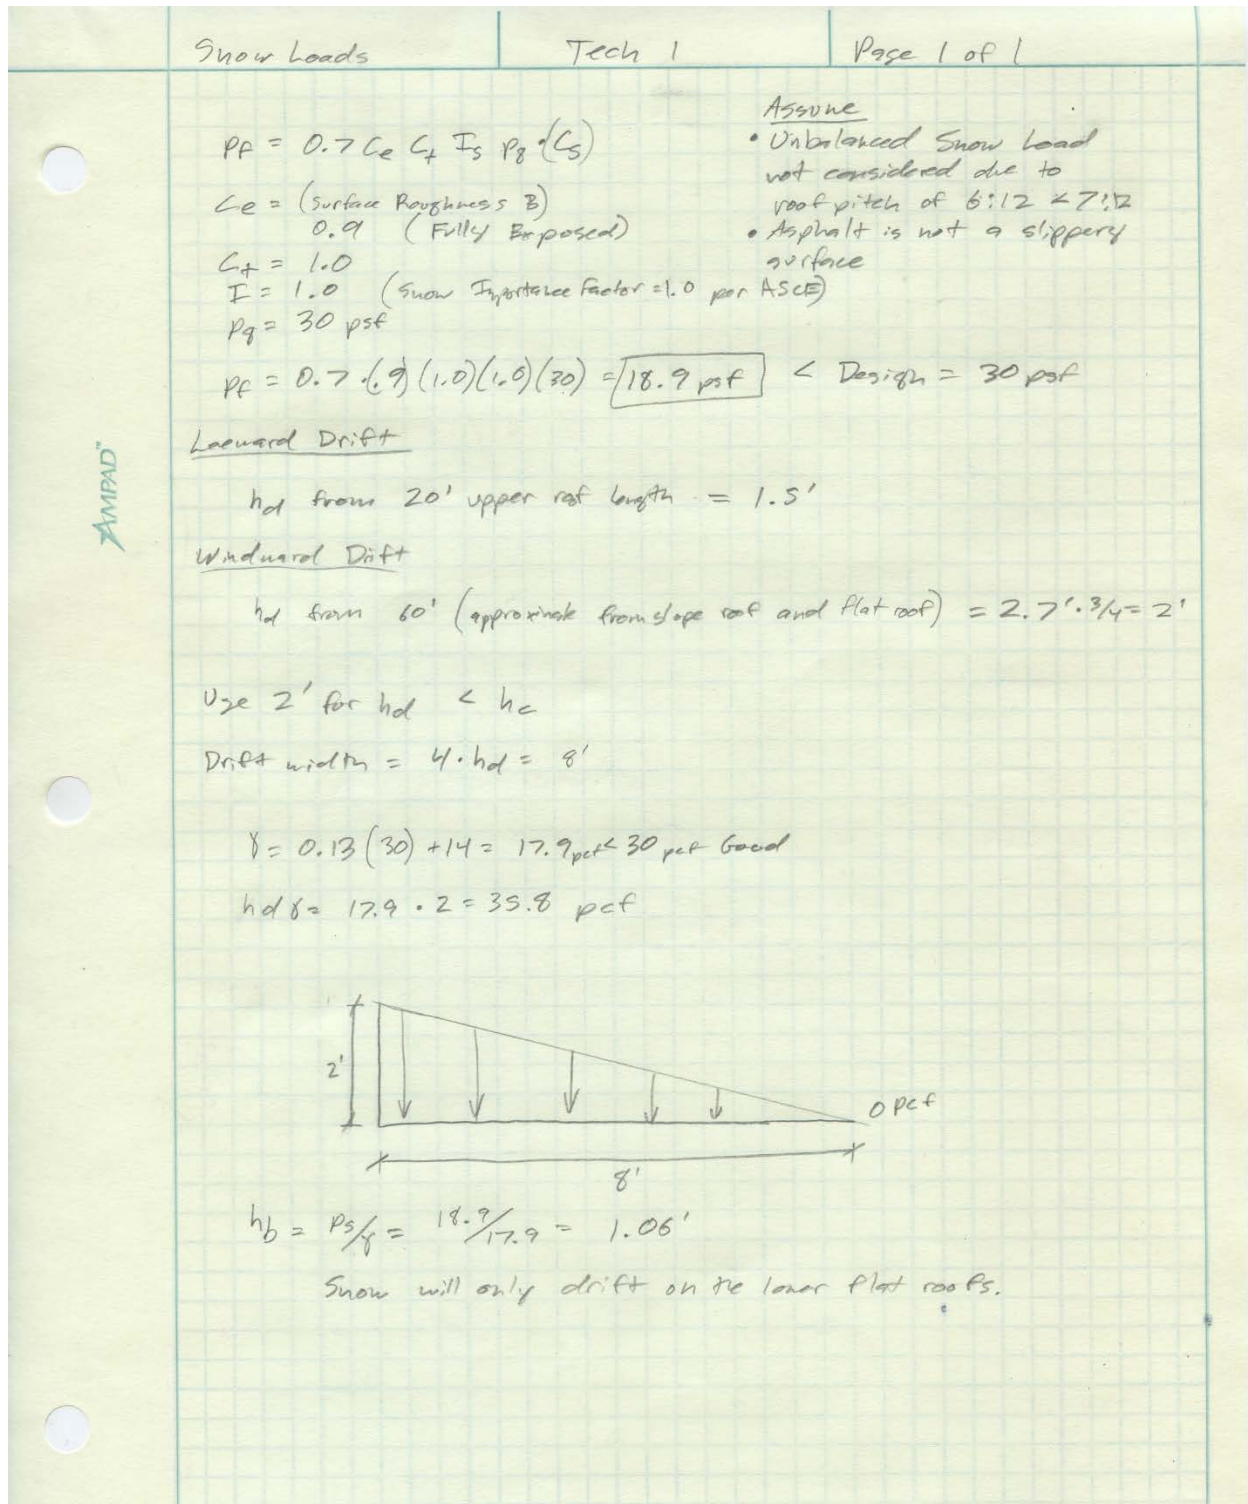 Snow Loads
Tech 1
Page 1 of 1
Pf = 0.7 Ce Ct Is Pg · (Cs)
Ce = (Surface Roughness B)
0.9 (Fully Exposed)
Ct = 1.0
I = 1.0 (Snow Importance Factor = 1.0 per ASCE)
Pg = 30 psf
Assume
• Unbalanced Snow Load
not considered due to
roof pitch of 6:12 < 7:12
• Asphalt is not a slippery
surface
Pf = 0.7 · (.9)(1.0)(1.0)(30) = 18.9 psf < Design = 30 psf
Leeward Drift
hd from 20' upper roof length = 1.5'
Windward Drift
hd from 60' (approximate from slope roof and flat roof) = 2.7' · 3/4 = 2'
Use 2' for hd < hc
Drift width = 4 · hd = 8'
γ = 0.13(30) + 14 = 17.9 pcf < 30 pcf Good
hd γ = 17.9 · 2 = 35.8 pcf
2'
0 pcf
8'
hb = Ps/γ = 18.9/17.9 = 1.06'
Snow will only drift on the lower flat roofs.
AMPAD™